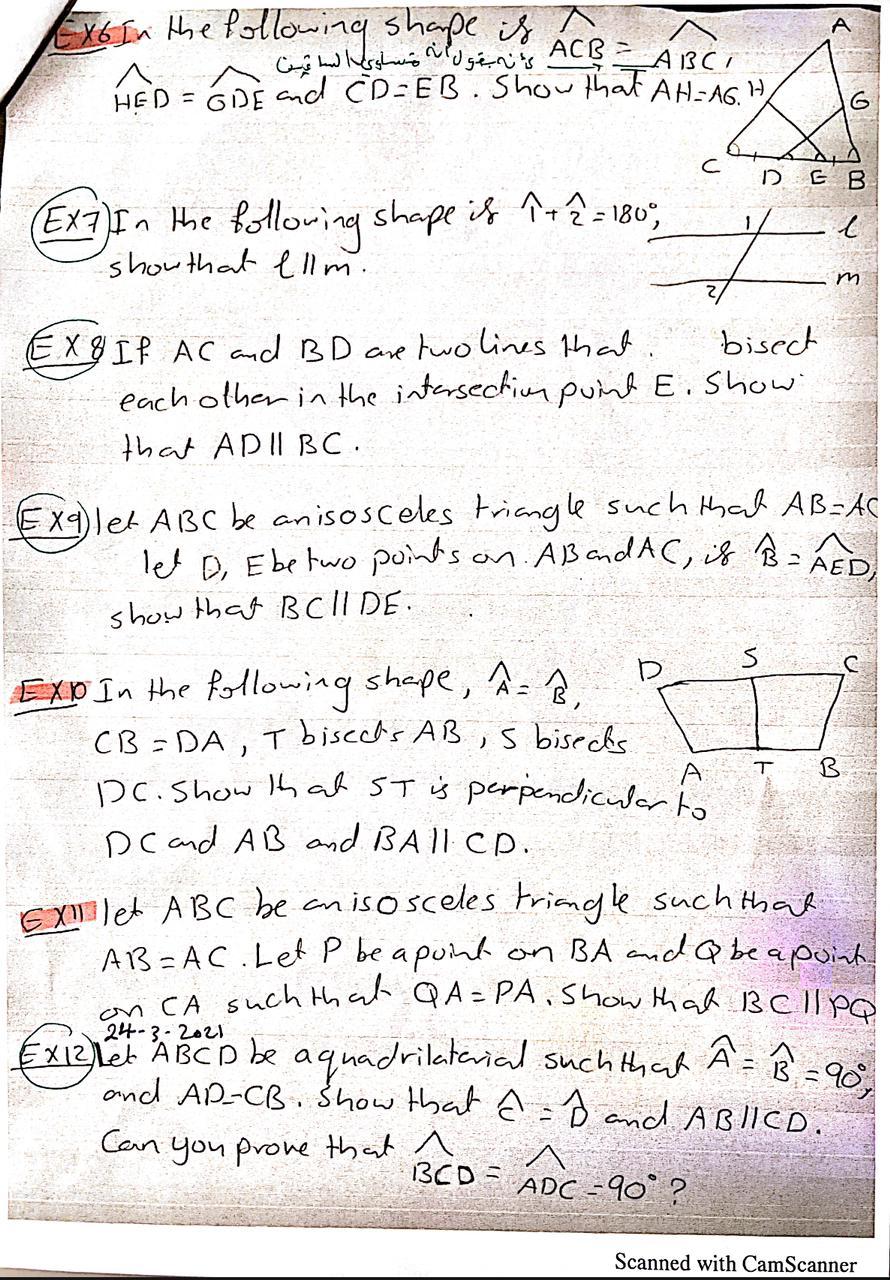 Ex6 In the following shape if ACB = ABC,
HED = GDE and CD=EB. Show that AH=AG.
A
H
G
C D E B
Ex7 In the following shape if 1̂+2̂=180°,
show that l ll m.
1 l
2 m
EX8 If AC and BD are two lines that. bisect
each other in the intersection point E. Show
that AD ll BC.
EX9 let ABC be an isosceles triangle such that AB=AC
let D, E be two points on AB and AC, if B̂ = AED,
show that BC ll DE.
EX10 In the following shape, Â= B̂,
CB=DA, T bisects AB, S bisects
DC. Show that ST is perpendicular to
DC and AB and BA ll CD.
D S C
A T B
EX11 let ABC be an isosceles triangle such that
AB=AC. Let P be a point on BA and Q be a point
on CA such that QA=PA. Show that BC ll PQ
24-3-2021
EX12 Let ABCD be a quadrilaterial such that Â = B̂ = 90°,
and AD=CB. Show that Ĉ = D̂ and AB//CD.
Can you prove that BCD = ADC = 90° ?
Scanned with CamScanner